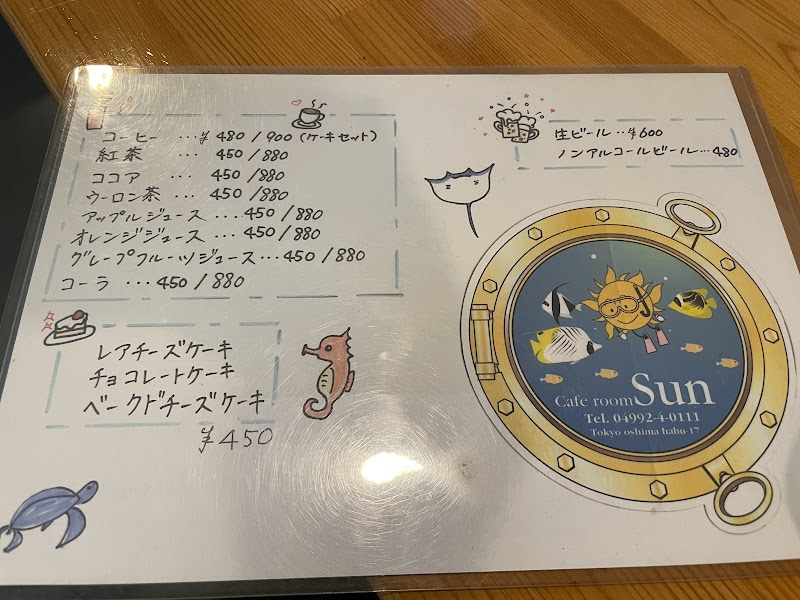 コーヒー …¥ 480 / 900 (ケーキセット)
紅茶 … 450 / 880
ココア … 450 / 880
ウーロン茶 … 450 / 880
アップルジュース … 450 / 880
オレンジジュース … 450 / 880
グレープフルーツジュース … 450 / 880
コーラ … 450 / 880
レアチーズケーキ
チョコレートケーキ
ベークドチーズケーキ
¥450
生ビール … ¥600
ノンアルコールビール … 480
Cafe room Sun
Tel. 04992-4-0111
Tokyo oshima habu-17